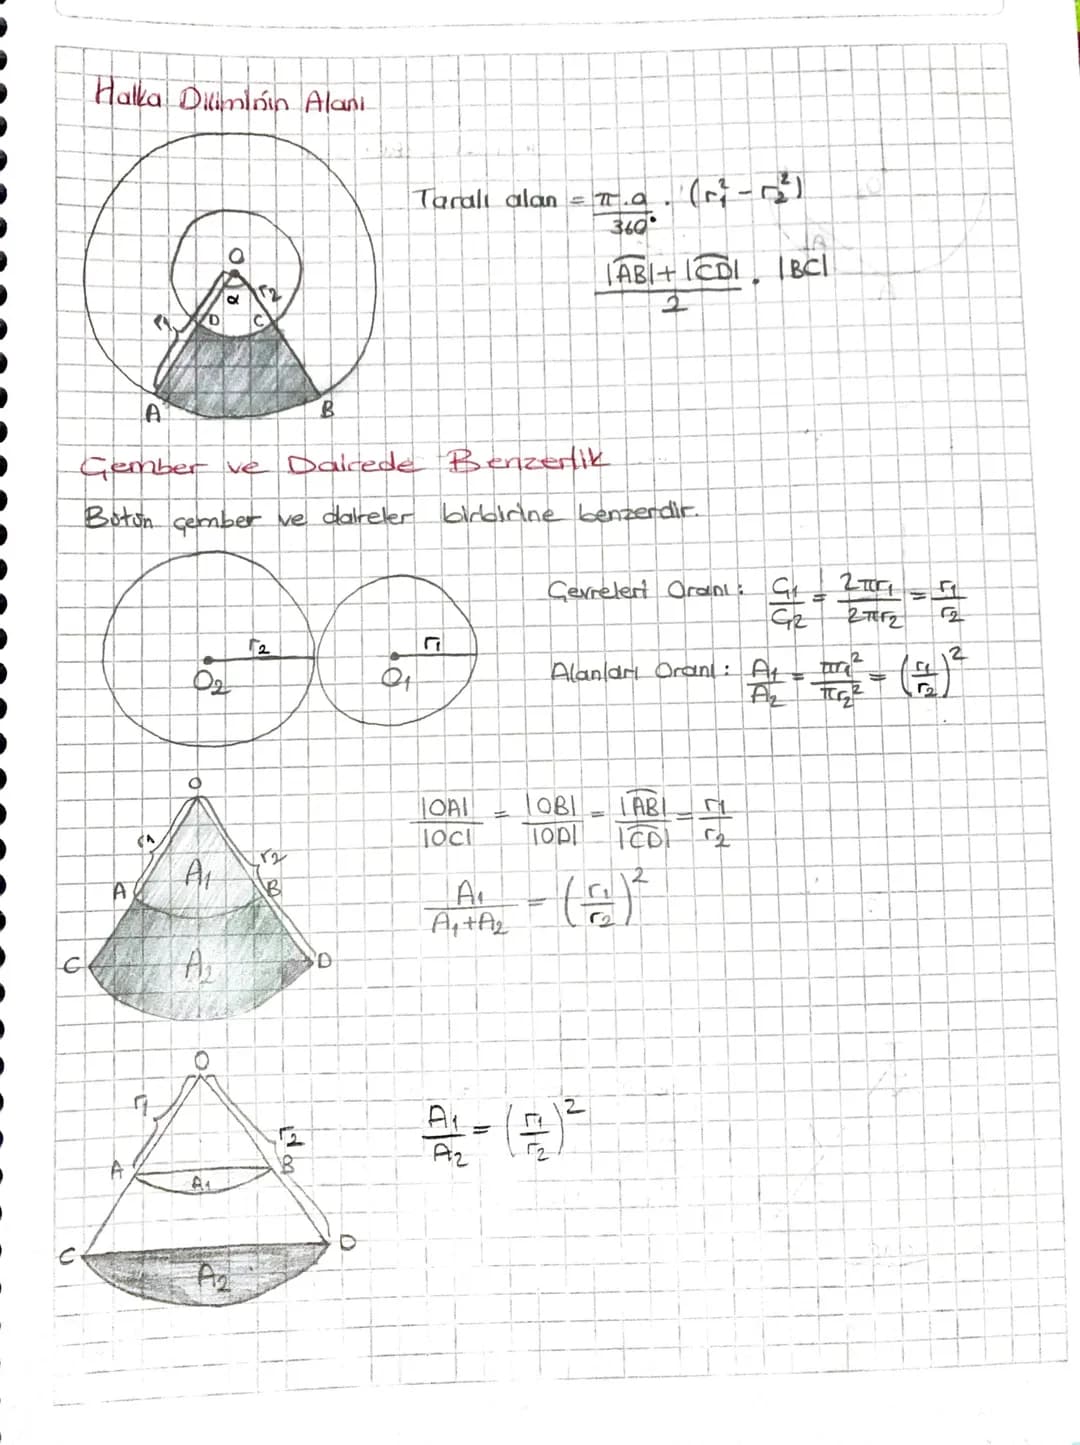 Halka Diliminin Alanı
O
α
r2
r1
D
C
A
B
Taralı alan = π.a/360° . (r₁² - r₂²)
|AB|+|CD|/2 . |BC|
Çember ve Dairede Benzerlik
Bütün çember ve daireler birbirine benzerdir.
r2
O2
r1
O1
Çevreleri Oranı: Ç1/Ç2 = 2πr1/2πr2 = r1/r2
Alanları Oranı: A1/A2 = πr1²/πr2² = (r1/r2)²
O
r1
r2
A1
A
B
C
A2
D
|OA|/|OC| = |OB|/|OD| = |AB|/|CD| = r1/r2
A1/A1+A2 = (r1/r2)²
O
r1
r2
A
B
A1
C
D
A2
A1/A2 = (r1/r2)²